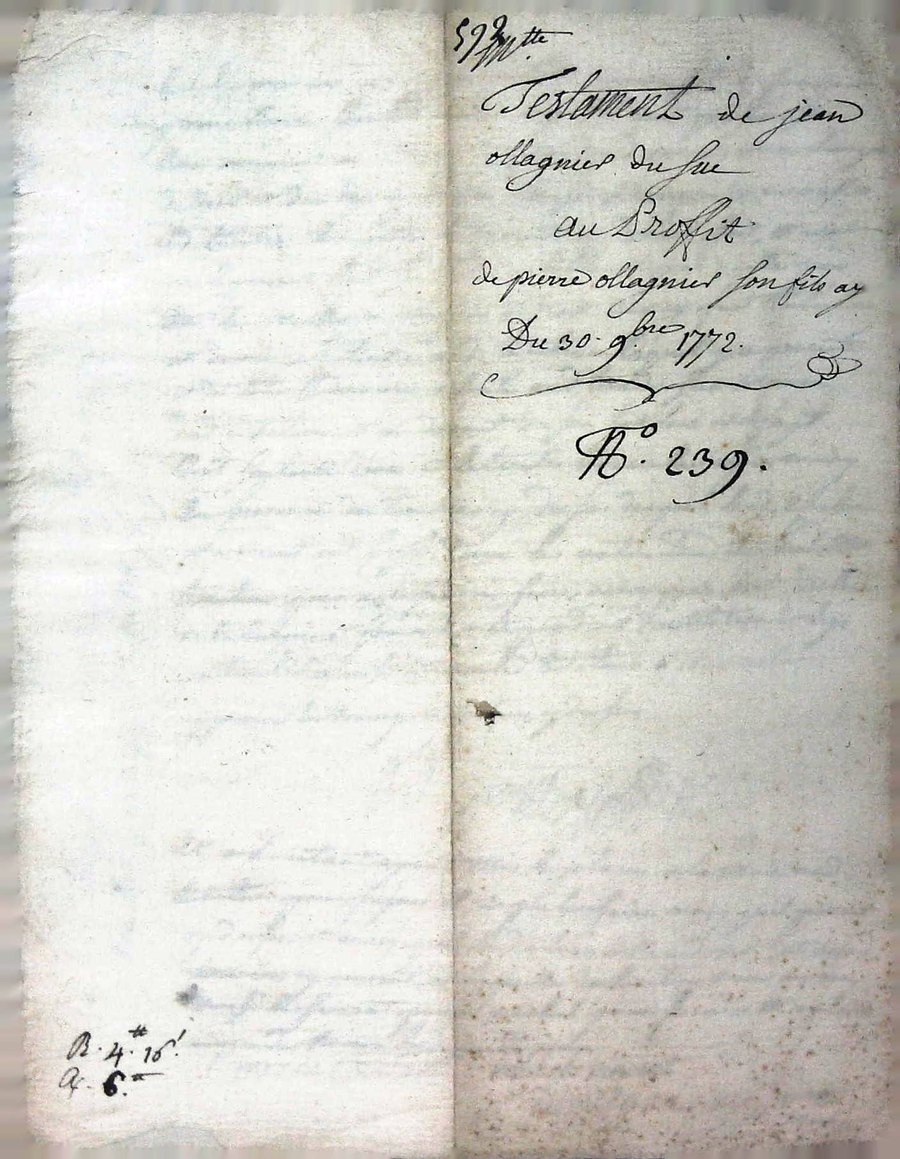 Testament de jean
ollagnier du sue
au Proffit
de pierre ollagnier son fils ay
Du 30. 9.bre 1772.
No. 239.
R. 4.tt 16.s
6.tt